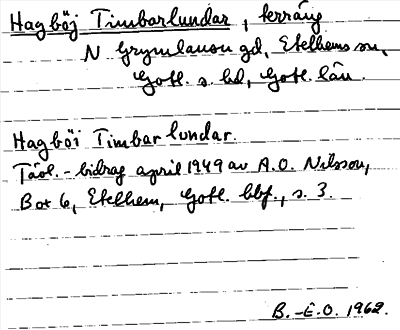 Hagböj Timbarlundar, terräng
N Grymlauson gd, Etelhems sn,
Gotl. s. hd, Gotl. län.
Hagböi Timbar lundar.
Tävl.-bidrag april 1949 av A.O. Nilsson,
Box 6, Etelhem, Gotl. bbf., s. 3.
B.-E.O. 1962.